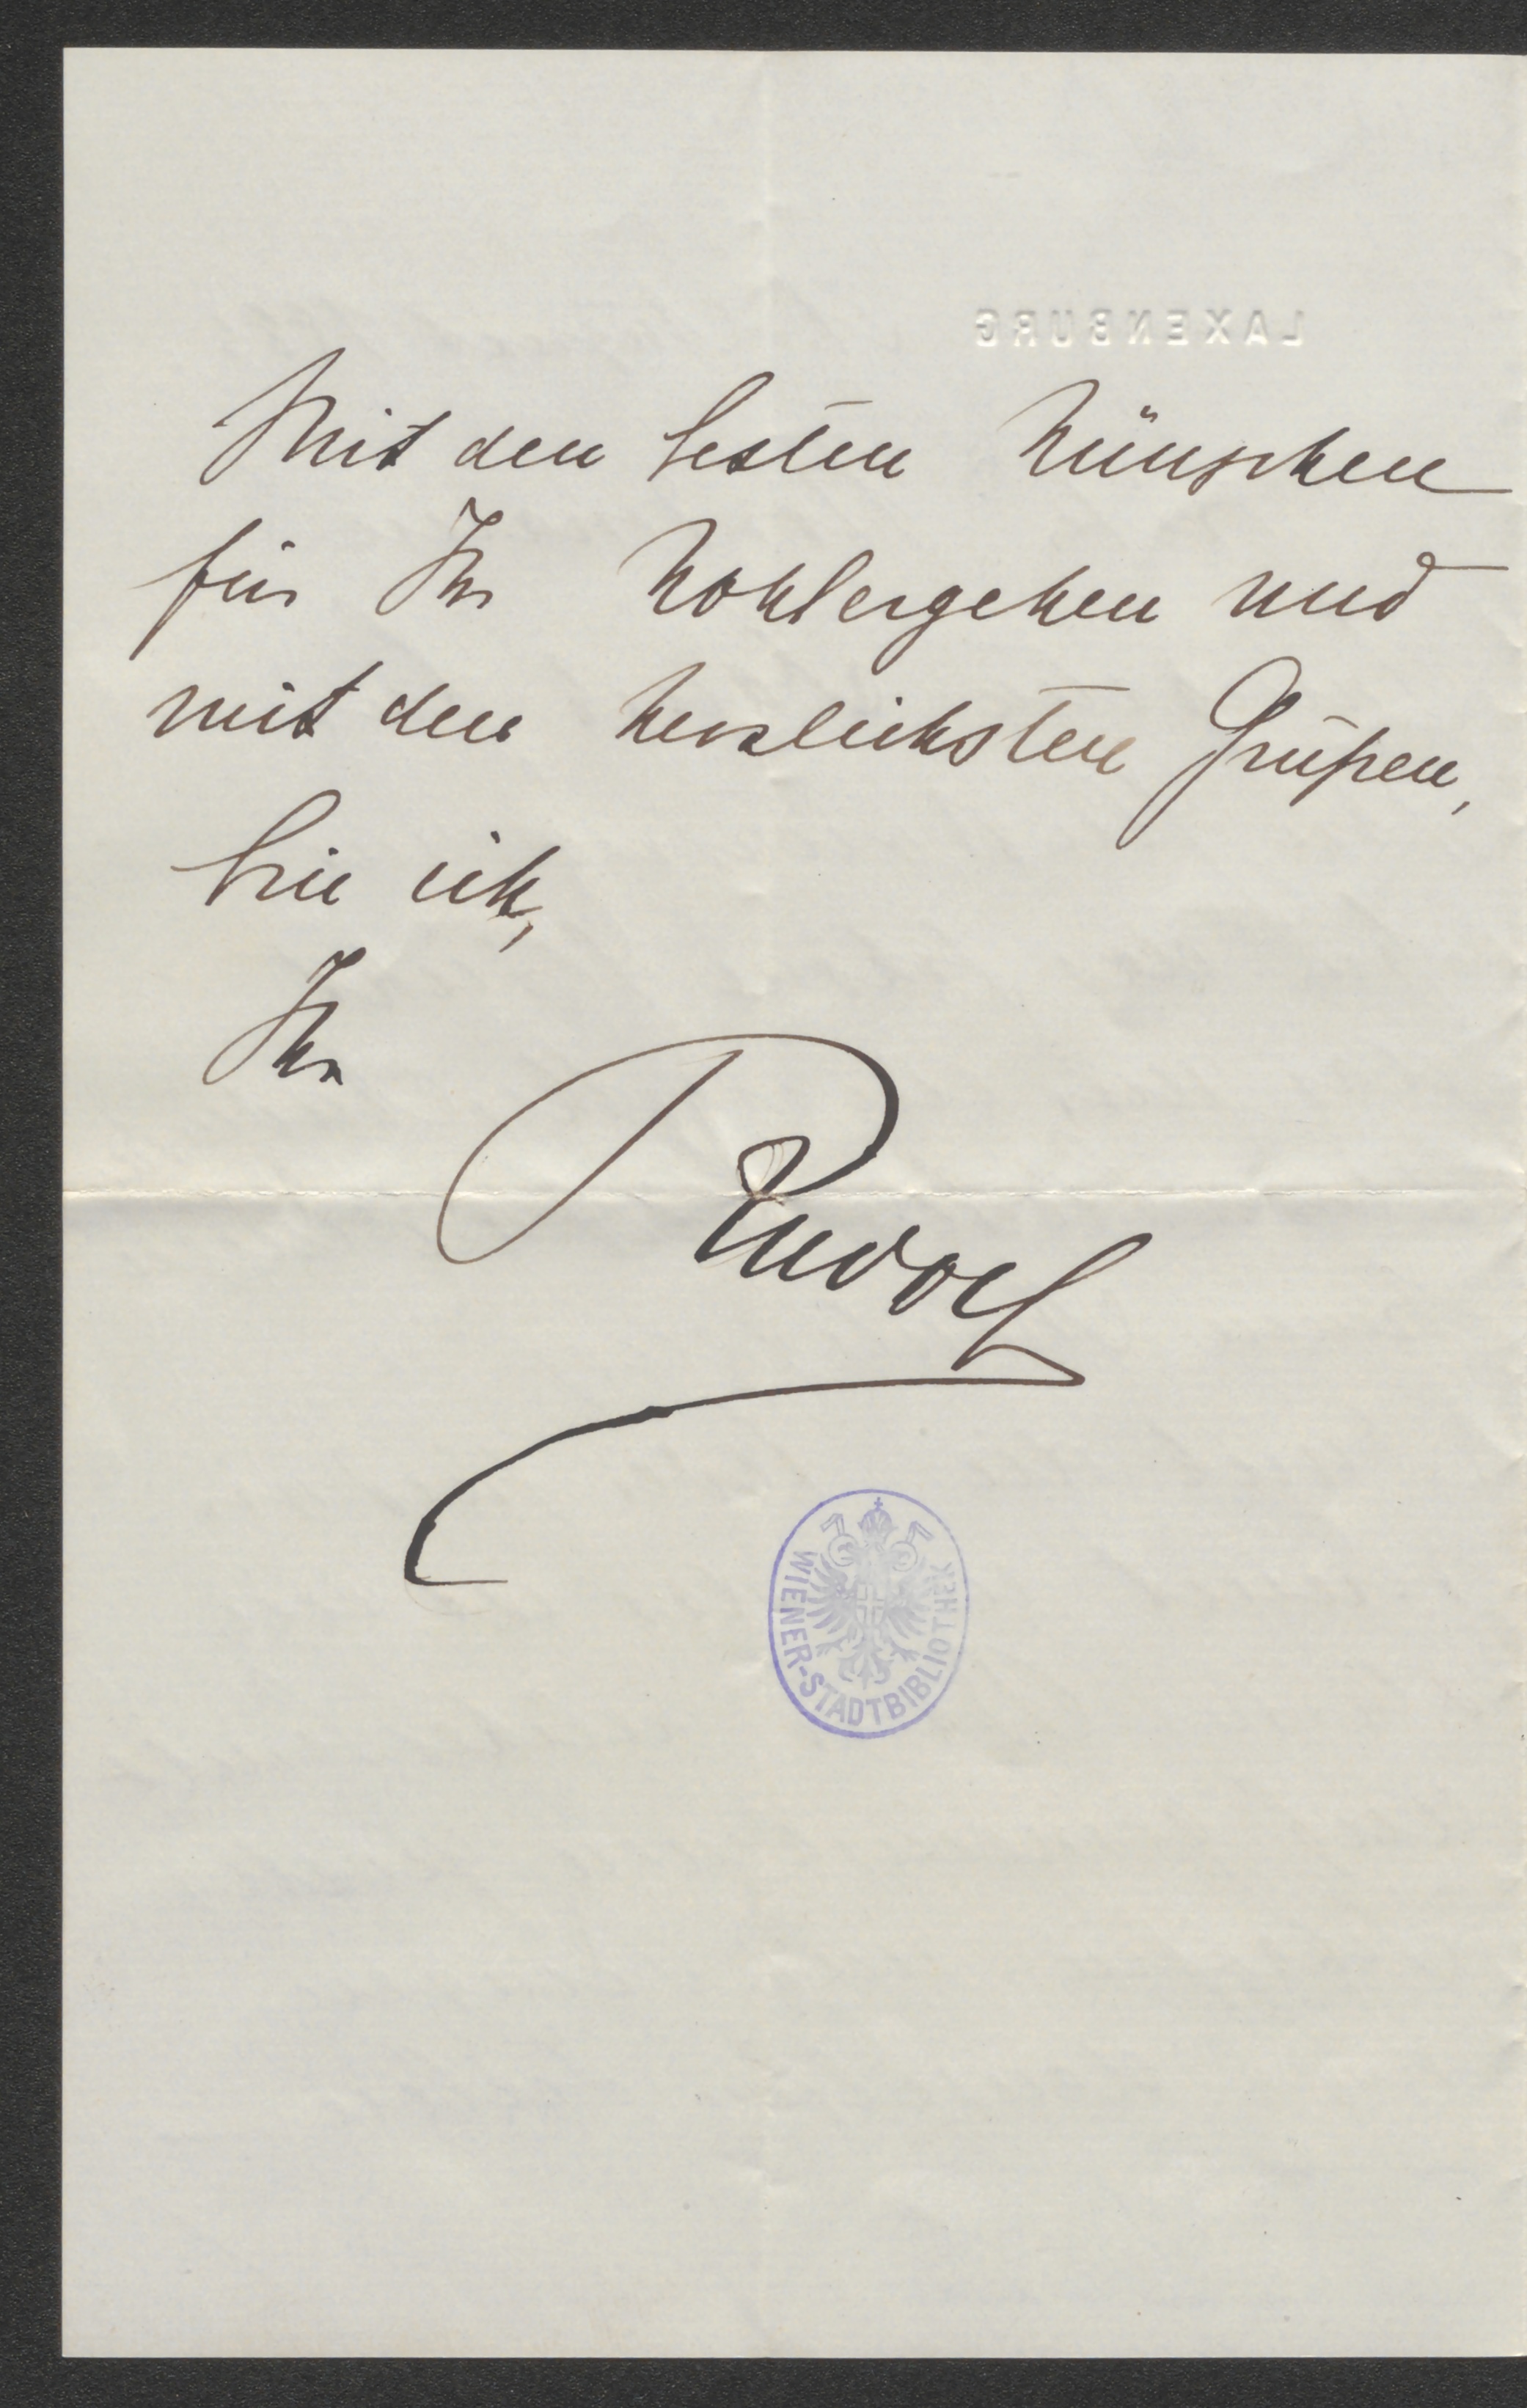 LAXENBURG
Mit den besten Wünschen
für Ihr Wohlergehen und
mit den herzlichsten Grüßen,
bin ich,
Ihr
Rudolf
WIENER-STADTBIBLIOTHEK